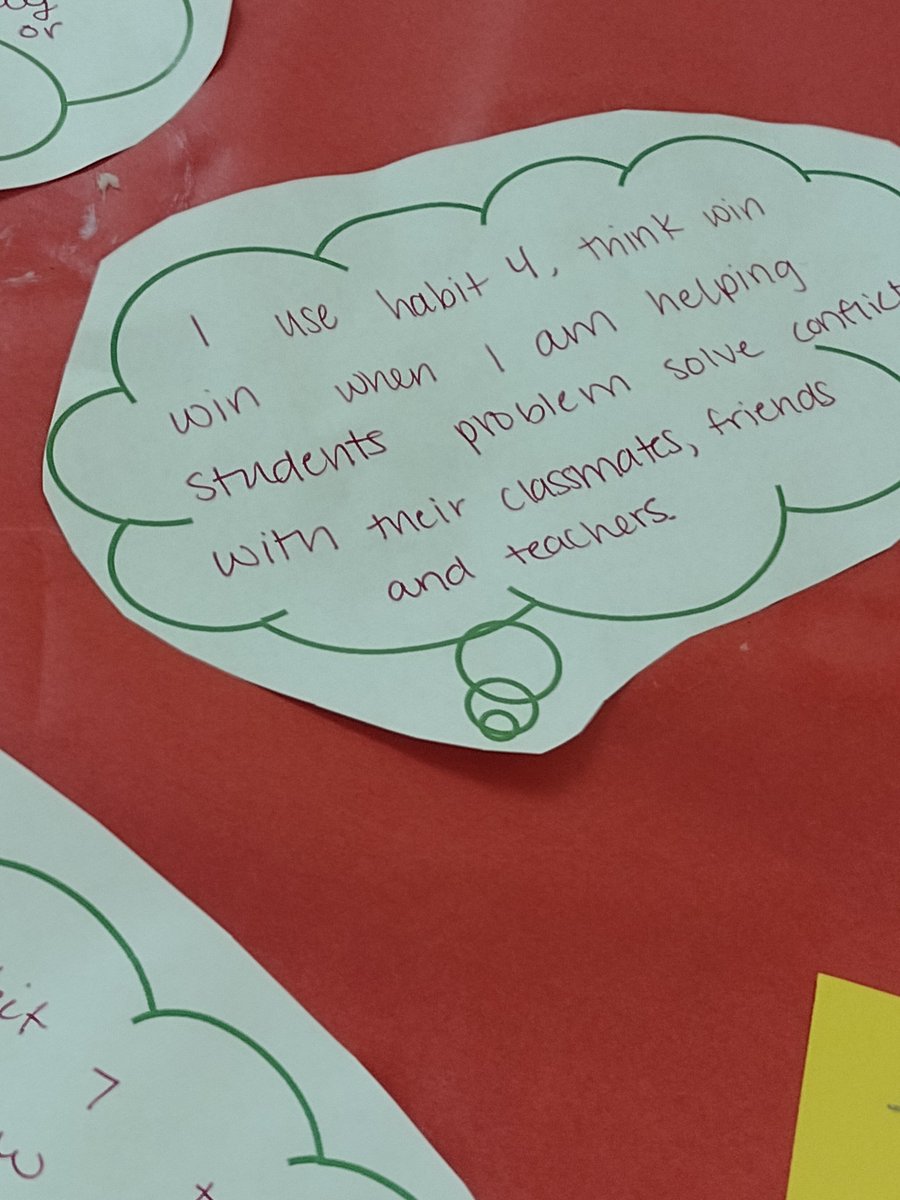 or
I use habit 4, think win
win when I am helping
students problem solve conflict
with their classmates, friends
and teachers.